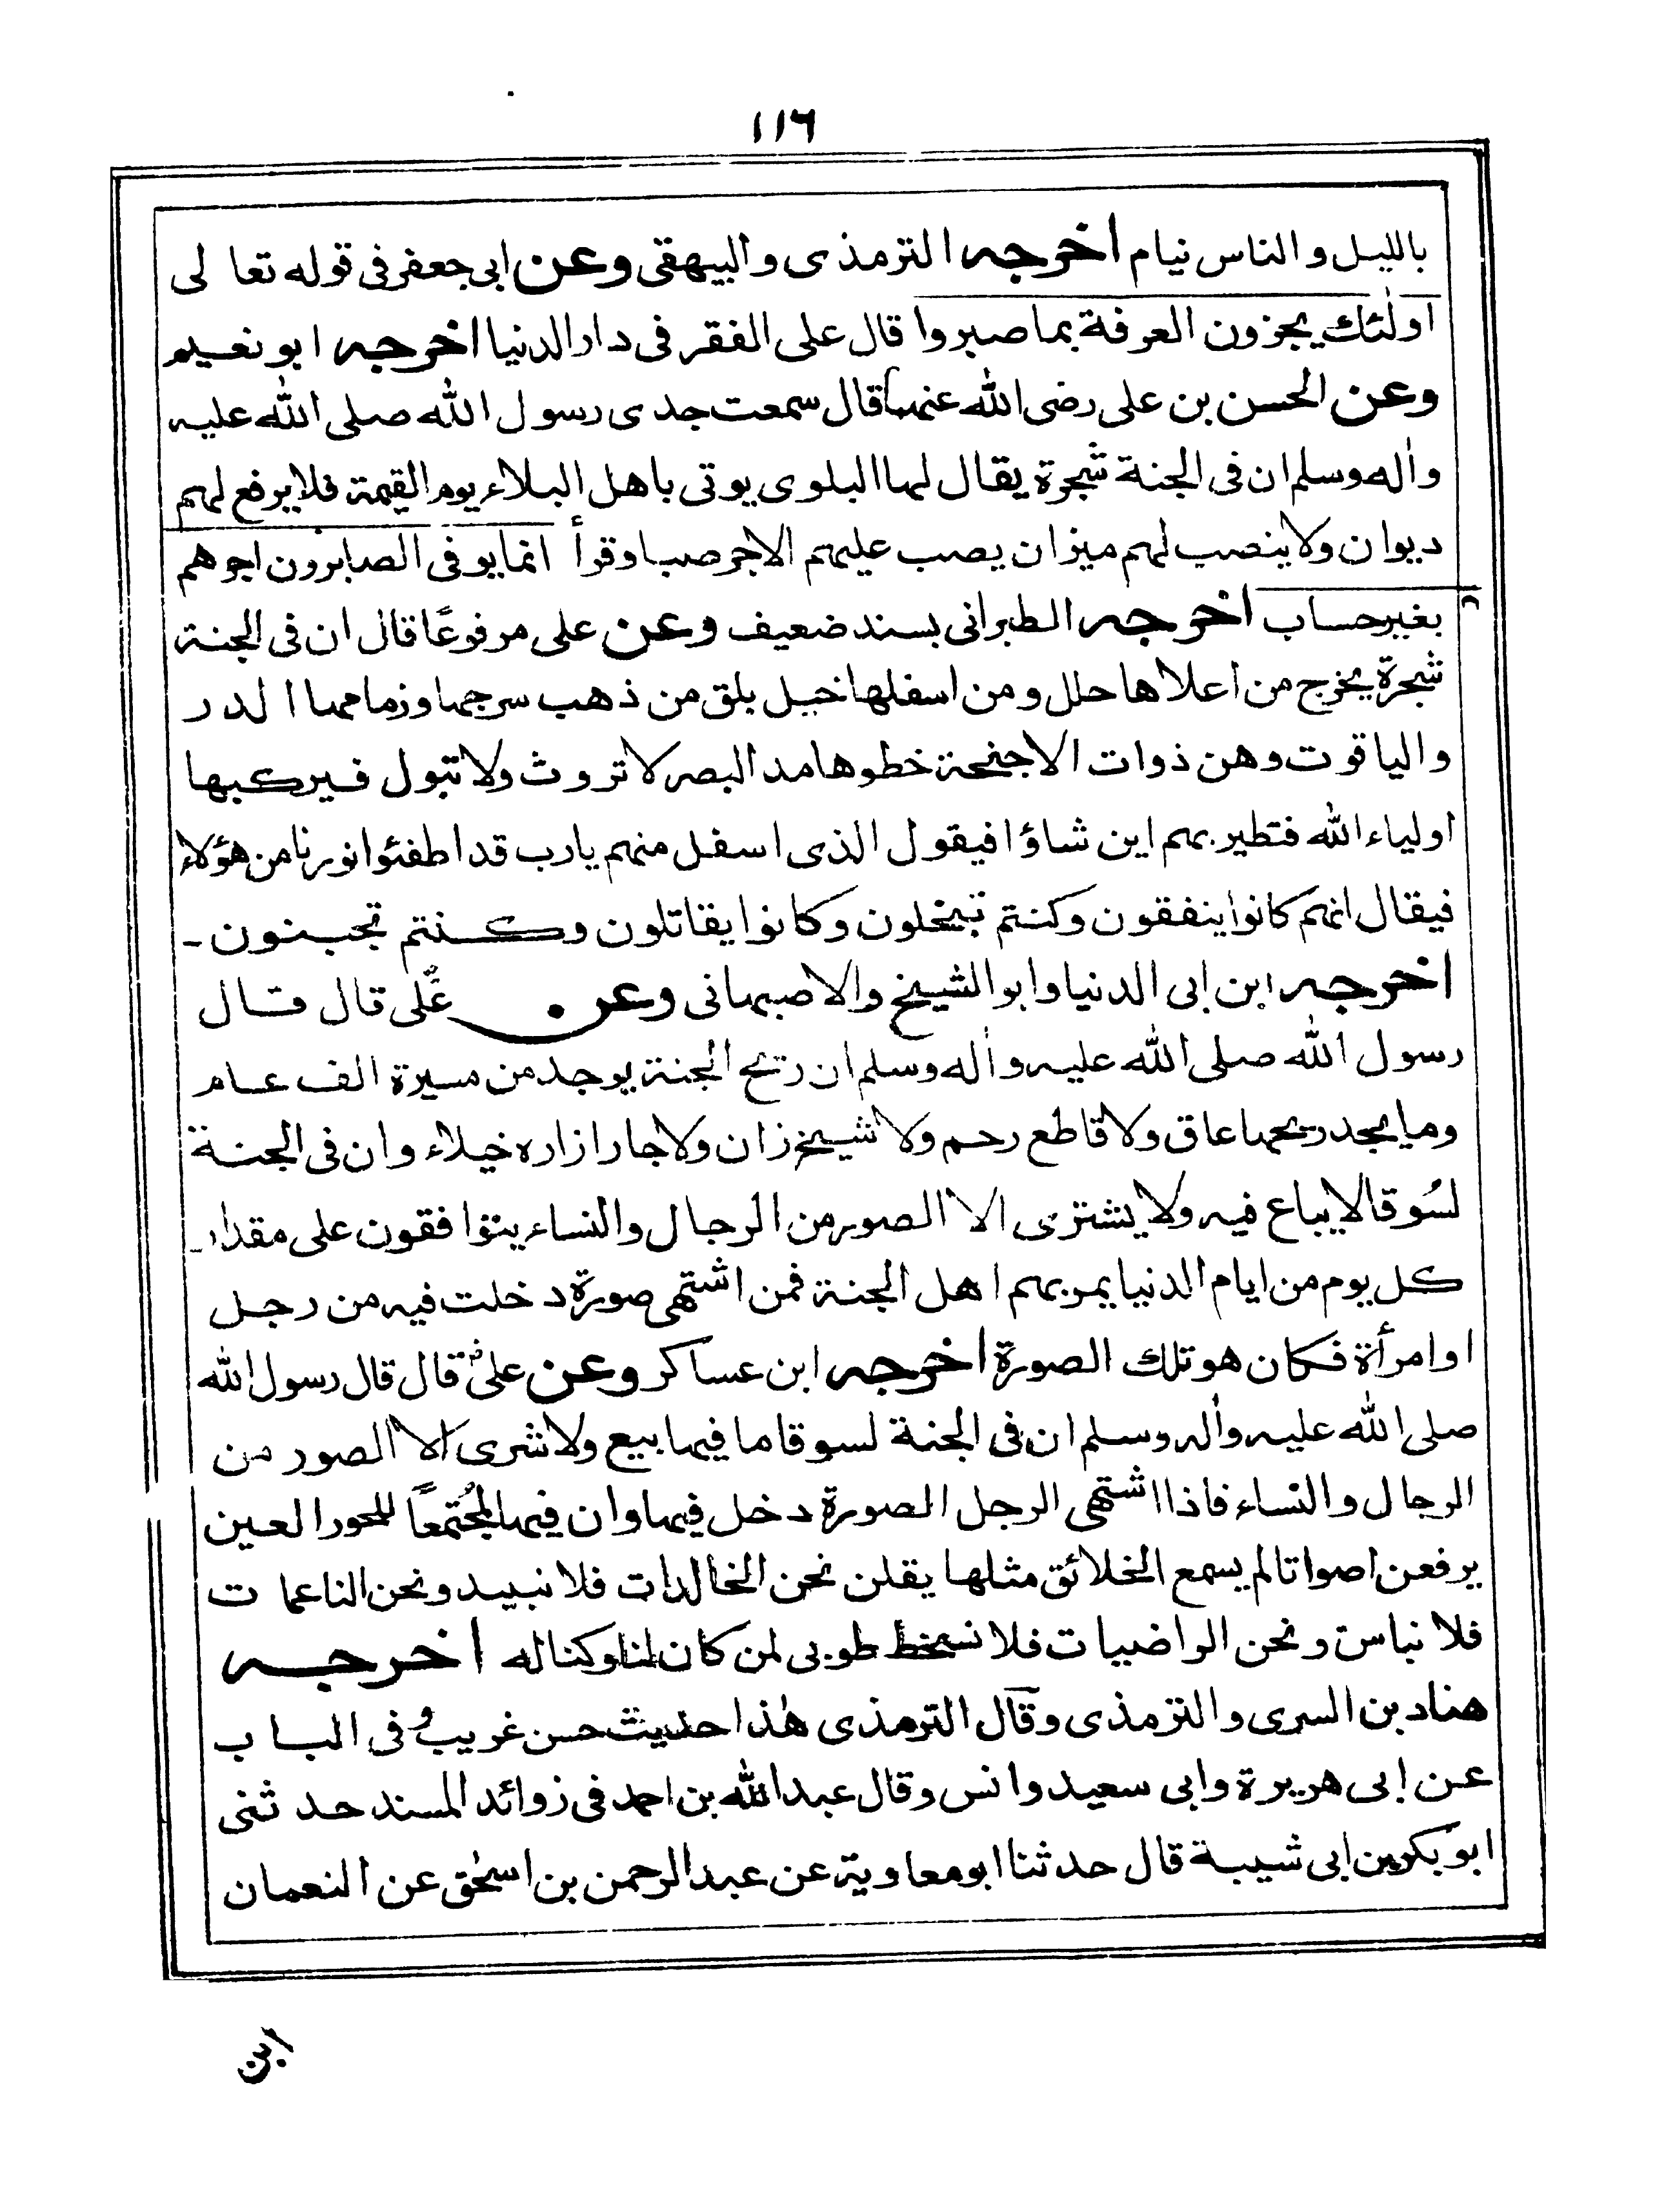 ١١٦
بالليل والناس نيام اخرجه الترمذى والبيهقى وعن ابى جعفر فى قوله تعالى
اولٰئك يجزون العرفة بما صبروا قال على الفقر فى دار الدنيا اخرجه ابو نعيم
وعن الحسن بن على رضى الله عنهما قال سمعت جدى رسول الله صلى الله عليه
واٰله وسلم ان فى الجنة شجرة يقال لها البلوى يوتى باهل البلاء يوم القيمة فلا يرفع لهم
ديوان ولا ينصب لهم ميزان يصب عليهم الاجر صبا وقرأ انما يوفى الصابرون اجوهم
بغير حساب اخرجه الطبرانى بسند ضعيف وعن على مرفوعًا قال ان فى الجنة
شجرة يخرج من اعلاها حلل ومن اسفلها خيل بلق من ذهب سرجها وزمامها الدر
والياقوت وهن ذوات الاجنحة خطوها مد البصر لا تروث ولا تبول فيركبها
اولياء الله فتطير بهم اين شاؤا فيقول الذى اسفل منهم يارب قد اطفئوا نورنا من هؤلاء
فيقال انهم كانوا ينفقون وكنتم تبخلون وكانوا يقاتلون وكنتم تجبنون -
اخرجه ابن ابى الدنيا وابو الشيخ والاصبهانى وعن علىؓ قال قال
رسول الله صلى الله عليه واٰله وسلم ان ريح الجنة يوجد من مسيرة الف عام
وما يجد ريحها عاق ولا قاطع رحم ولا شيخ زان ولا جار ازاره خيلاء وان فى الجنة
لسُوقا لا يباع فيه ولا يشترى الا الصور من الرجال والنساء يتوافقون على مقدار -
كل يوم من ايام الدنيا يمر بهم اهل الجنة فمن اشتهى صورة دخلت فيه من رجل
او امرأة فكان هو تلك الصورة اخرجه ابن عساكر وعن علىؓ قال قال رسول الله
صلى الله عليه واٰله وسلم ان فى الجنة لسوقا ما فيها بيع ولا شرى الا الصور من
الرجال والنساء فاذا اشتهى الرجل الصورة دخل فيها وان فيها لمجُتمعًا للحور العين
يرفعن اصواتا لم يسمع الخلائق مثلها يقلن نحن الخالدات فلا نبيد ونحن الناعمات
فلا نباس ونحن الراضيات فلا نسخط طوبى لمن كان لنا وكنا له اخرجه
هناد بن السرى والترمذى وقال الترمذى هٰذا حديث حسن غريب وفى الباب
عن ابى هريرة وابى سعيد وانس وقال عبد الله بن احمد فى زوائد المسند حدثنى
ابو بكر بن ابى شيبة قال حدثنا ابو معاوية عن عبد الرحمن بن اسحٰق عن النعمان
ابن